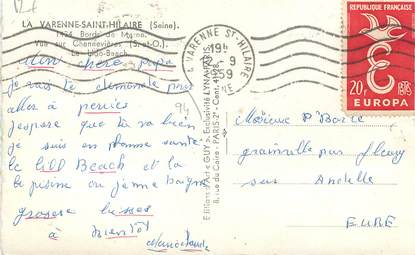 LA VARENNE-SAINT-HILAIRE (Seine).
1424. Bords de Marne.
Vue sur Chennevières (S.-et-O.).
Le Lido-Beach.
Mon chère papa
je vais te demande pour
aller à
j'espore que tu va bien
je suis en bonne santé
le lill Beach et la
la pisine ou j'aime baigné
grosse bises
à bientôt
94
Editions d'Art "GUY" Exclusivité LYNA-PARIS
8, rue du Caire - PARIS-2e - Cent.
LA VARENNE ST-HILAIRE
19h
9
1959
SEINE
REPUBLIQUE FRANÇAISE
20F
POSTES
EUROPA
Mosieur P
grainville par fleury
sur Andelle
EURE